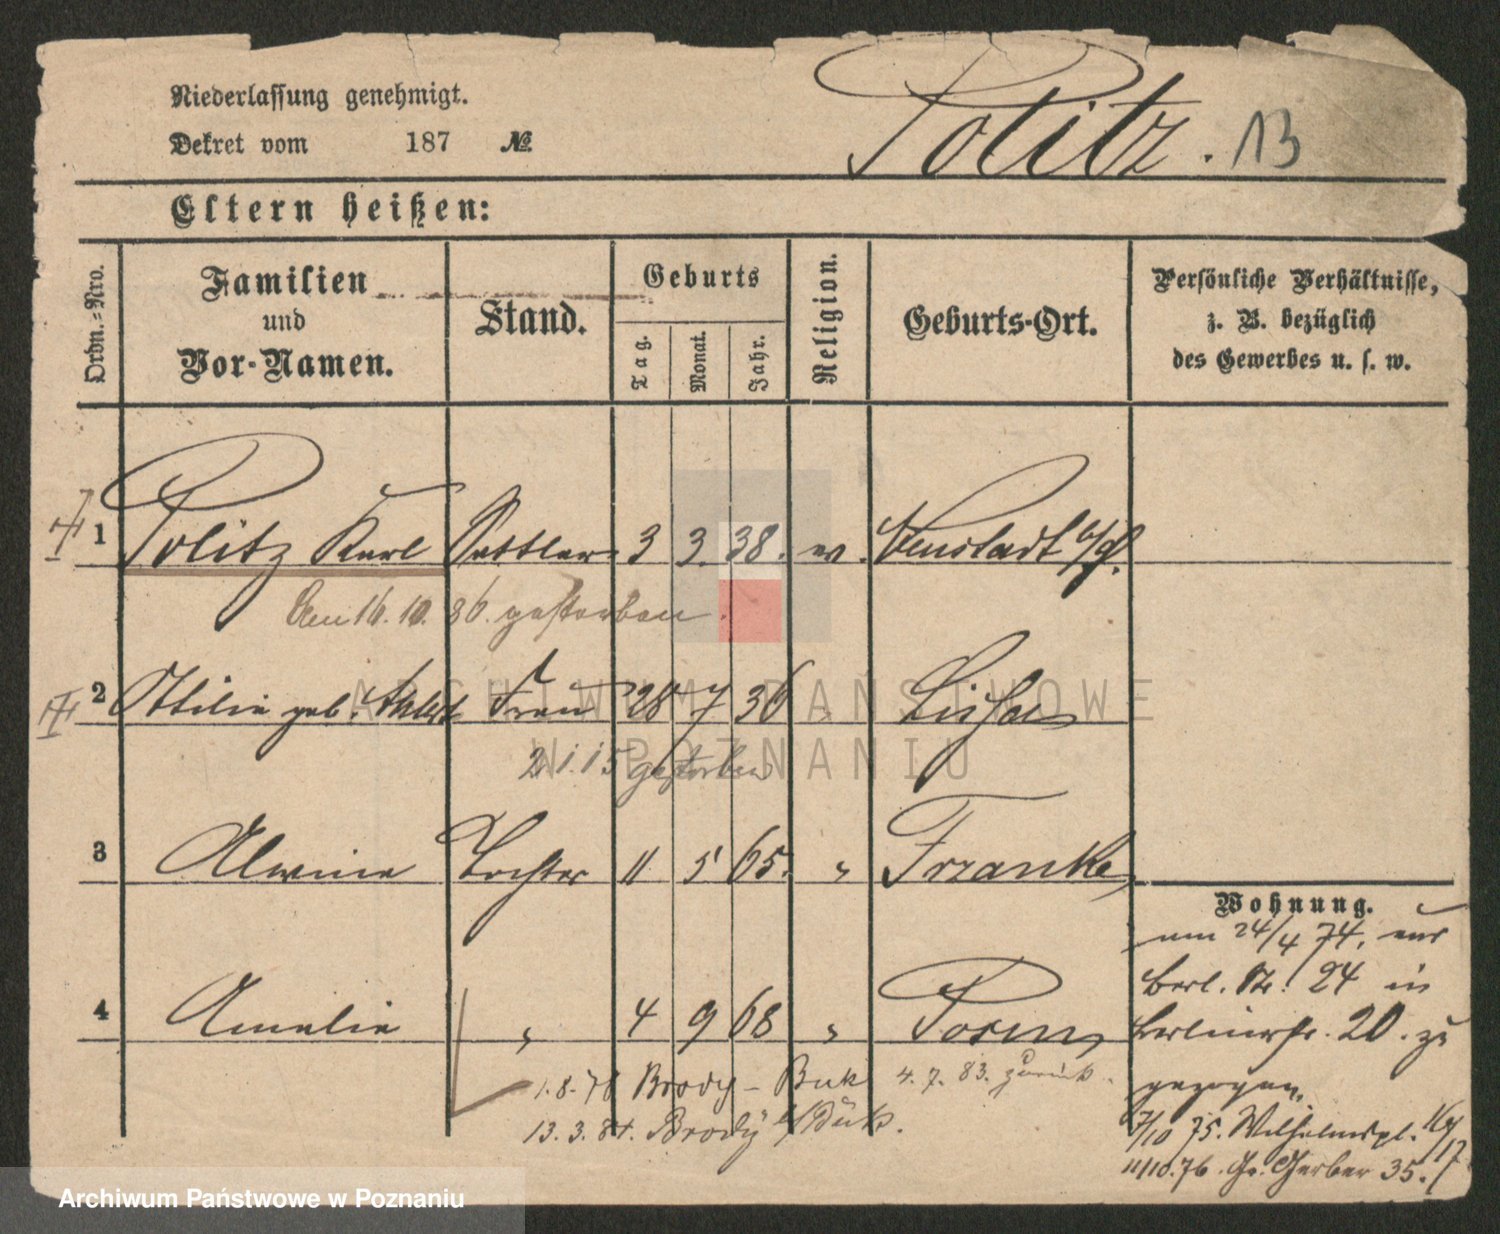 Niederlassung genehmigt.
Dekret vom 187 №
Politz. 13
Eltern heißen:
Ordn.-Nro.
Familien
und
Vor-Namen.
Stand.
Geburts
Tag.
Monat.
Jahr.
Religion.
Geburts-Ort.
Persönliche Verhältnisse,
z. B. bezüglich
des Gewerbes u. s. w.
1 Politz Karl Sattler 3 3. 38. ev. Neustadt b/P.
Am 16. 10. 86. gestorben.
2 Ottilie geb. Frau 28 7 36 "
2.1.15 gestorben
3 Alwine Tochter 11 5 65. " Frzanke
4 Amalie " 4 9 68 " Posen
1.8.78 Brody - Buk 4. 7. 83. zurück.
13. 3. 84. Brody b/Buk.
Wohnung.
am 24/4 74. aus
Berl. Str. 24 in
Berlinerstr. 20. zu
gezogen.
7/10 75. Wilhelmspl. 16/17
11/10.76. Gr. Gerber 35.
ARCHIWUM PAŃSTWOWE
W POZNANIU
Archiwum Państwowe w Poznaniu